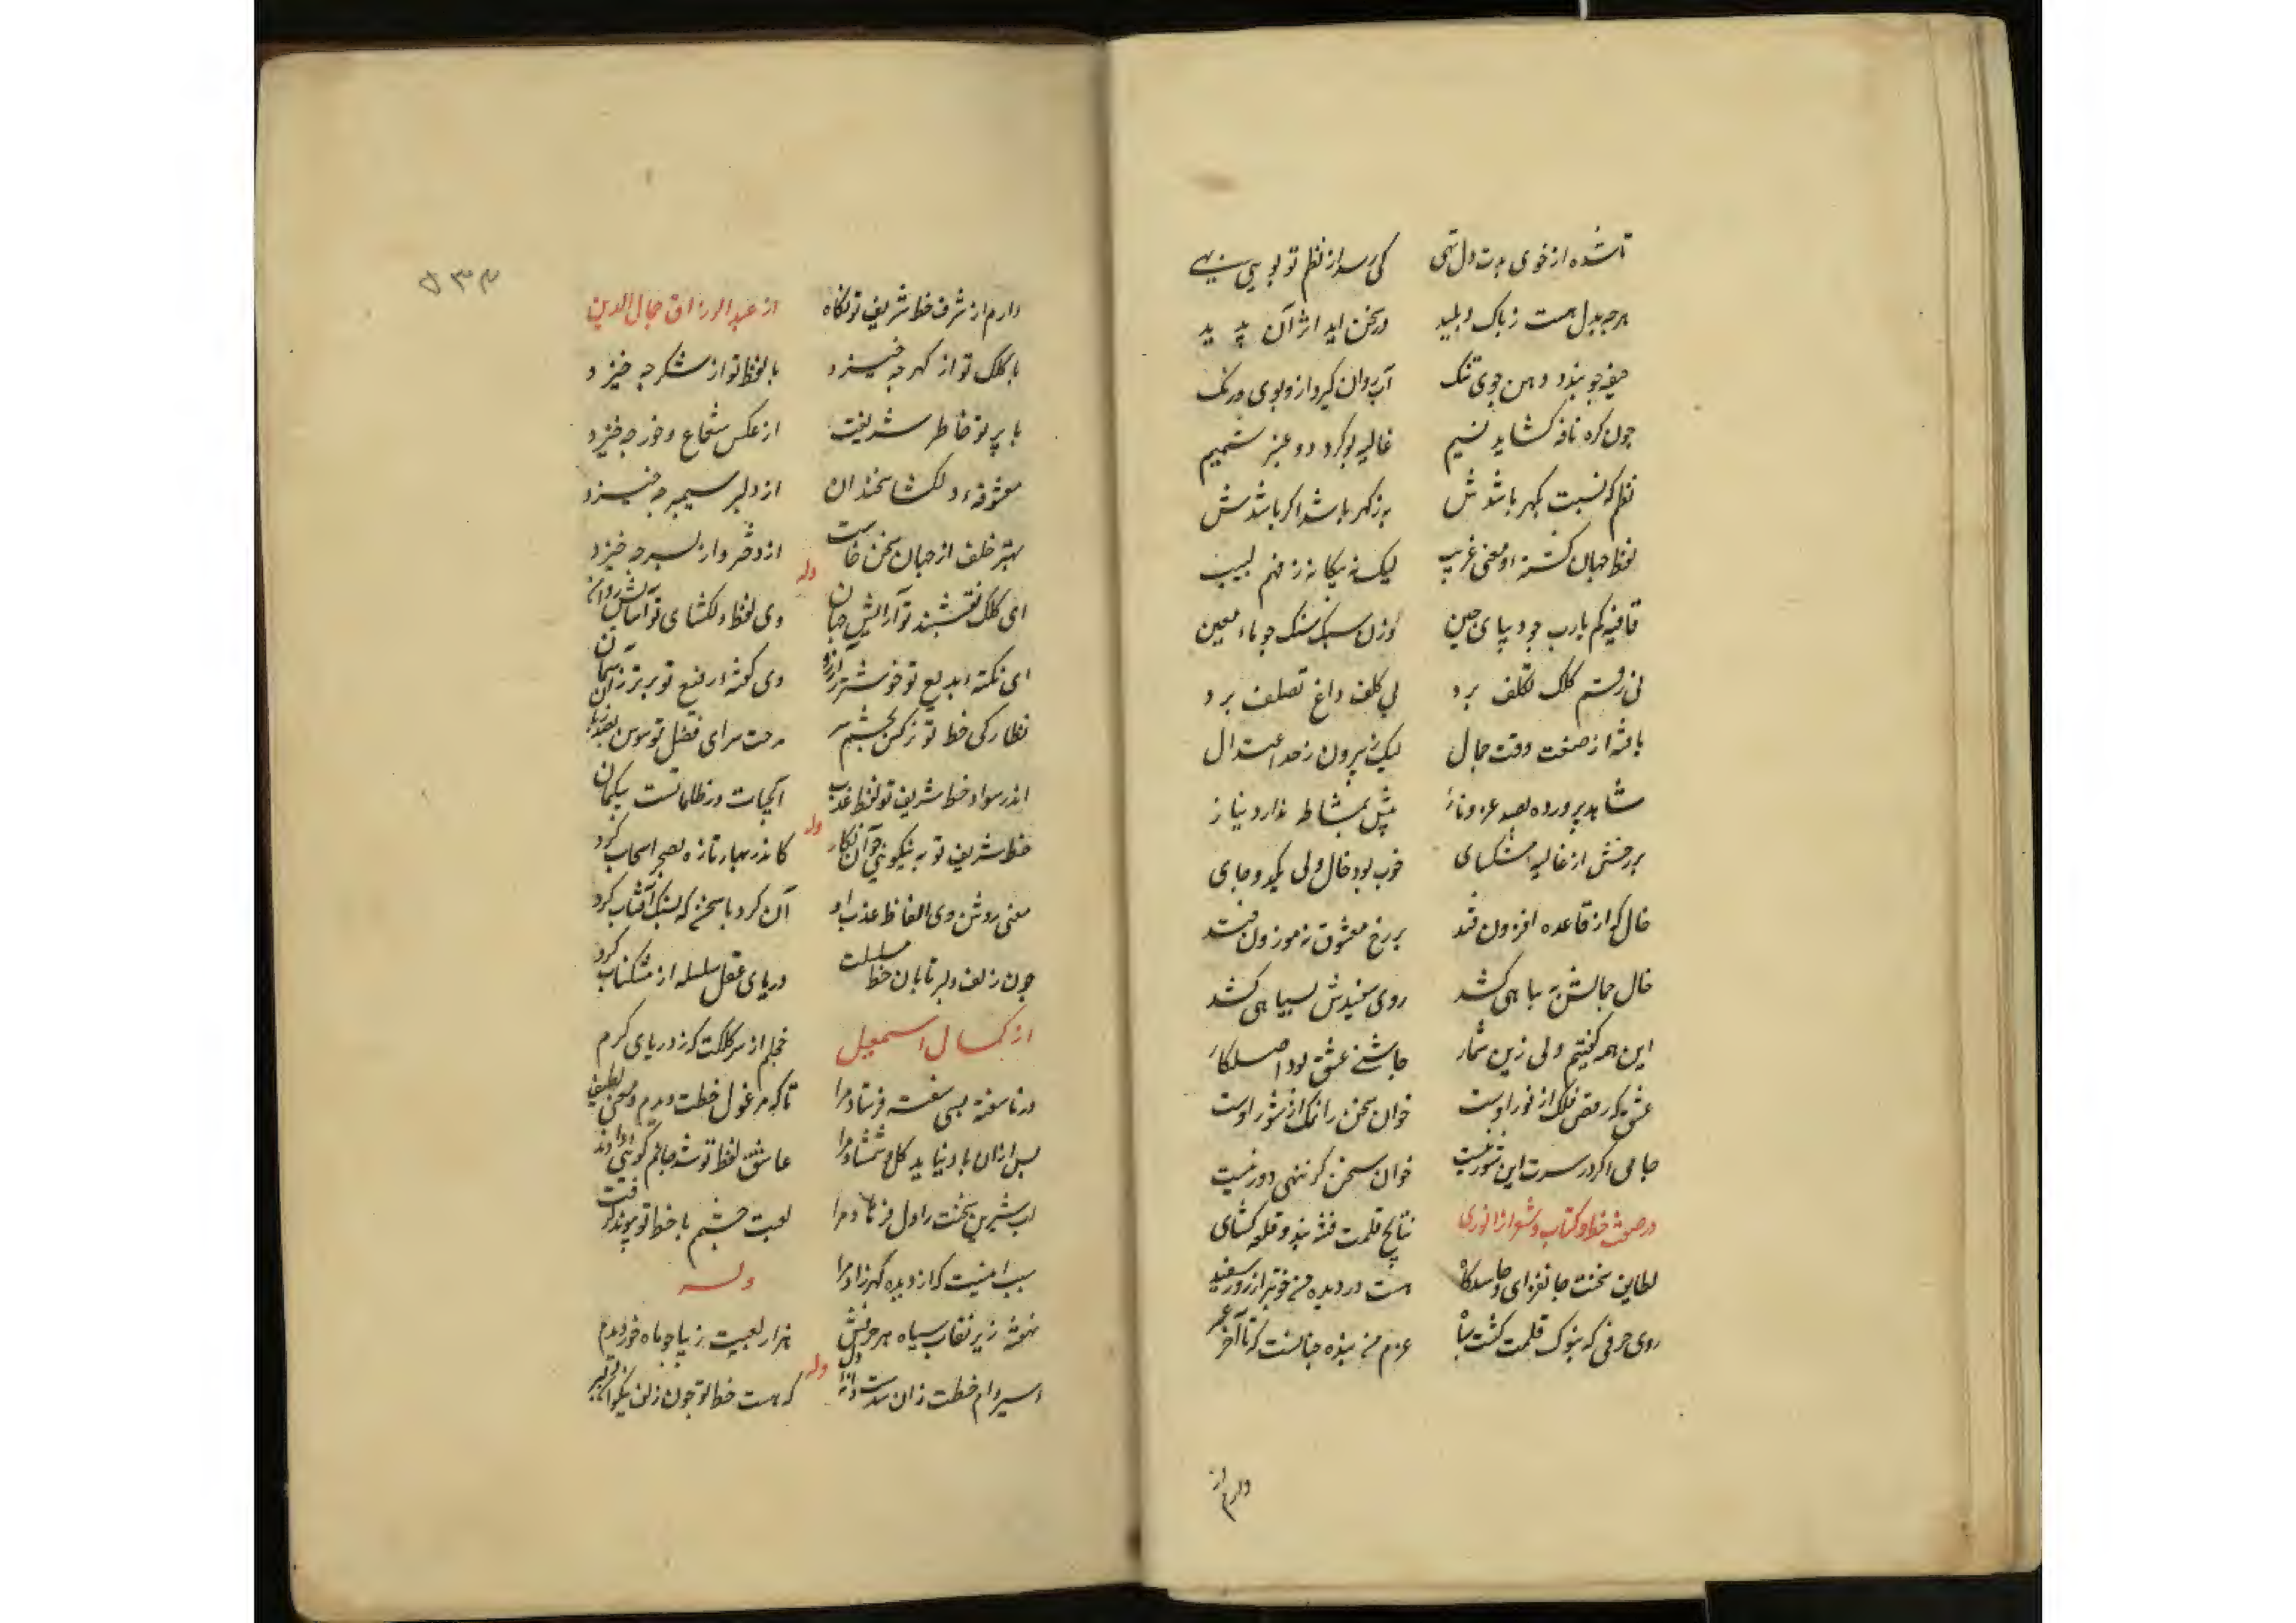 تا شده از خوی بدت دل تهی کی رسد از نظم تو بوی بهی
هرچه بدل هست ز پاک و پلید در سخن آید اثر آن پدید
جیفه چو بندد دهن جوی تنک آب روان گیرد ازو بوی و رنک
چون گره نافه گشاید نسیم غالیه بو گردد و عنبر شمیم
نظم که نسبت بگهر باشدش به ز گهر باشد اگر باشدش
لفظ جهان گشته و معنی غریب لیک نه بیگانه ز فهم لبیب
قافیه کم یاب چو دیبای چین وزن سبک سنگ چو ماء معین
نی رقم کلک تکلف برد نی کلف داغ تصلف برد
یافته از صنعت و دقت جمال لیک نه بیرون ز حد اعتدال
شاهد پرورده بصد عز و ناز پیش بمشاطه ندارد نیاز
بر رخش از غالیه مشکسای خوب بود خال ولی یک دو جای
خال که از قاعده افزون فتد بر رخ معشوق نه موزون فتد
خال جمالش به تباهی کشد روی سفیدش بسیاهی کشد
این همه گفتیم ولی زین شمار چاشنی عشق بود اصل کار
عشق که رقص فلک از نور اوست خوان سخن را نمک از شور اوست
جامی اگر در سرت این شور نیست خوان سخن گر ننهی دور نیست
در صفت خط و کتاب و شعر از انوری نتایج قلمت فتنه بند و قلعه کشای
لطایف سخنت جانفزای و حاسدکاه هست در دیده من خوبتر از روز سفید
روی حرفی که بنوک قلمت گشت سیاه عزم من بنده چنانست که تا آخر عمر
دارم از
۵۳۳
دارم از شرف خط شریف تو نگاه از عبد الرزاق جمال الدین
با کلک تو از گهر چه خیزد با لفظ تو از شکر چه خیزد
با پرتو خاطر شریفت از عکس شعاع و خور چه خیزد
معشوقه دلکشا سخندان از دلبر سیمبر چه خیزد
بهتر خلف از جهان سخن خاست از دختر و از پسر چه خیزد
وله
ای کلک نقشبند تو آرایش جهان وی لفظ دلکشای تو آسایش روان
ای نکته بدیع تو خوشتر ز آرزو وی گفته رفیع تو برتر ز آسمان
نظارگی خط تو نرگس بچشم سر مدحت سرای فضل تو سوسن بصد زبان
اندر سواد خط شریف تو لفظ عذب آبحیات در ظلماتست بیگمان
وله
خط شریف تو به نیکویی چو آن نگار کاندر بهار تازه بصحرا سحاب کرد
معنی روشن وی الفاظ عذب او آن کرد با سخن که بسنگ آفتاب کرد
چون زلف دلبر تابان خط مسلسلت در پای عقل سلسله از مشکناب کرد
از کمال اسمعیل خجلم از سر کلکت که ز دریای کرم
در ناسفته بسی سفت فرستاد مرا تا که مرغول خطت دیدم و معنی لطیف
پس ازان یاد نیاید گل و شمشاد مرا عاشق لفظ تو شد جانم گویی
لب شیرین سخنت را دل فرهاد مرا لعبت چشم با خط تو پیوند گرفت
سبب اینست که از دیده گهر زاد مرا وله
نهفته زیر نقاب سیاه هر حرفش هزار لعبت زیبا چو ماه خور دیدم
وله
اسیر دام خطت زان شدست که هست خط تو چون زلف نیکوان